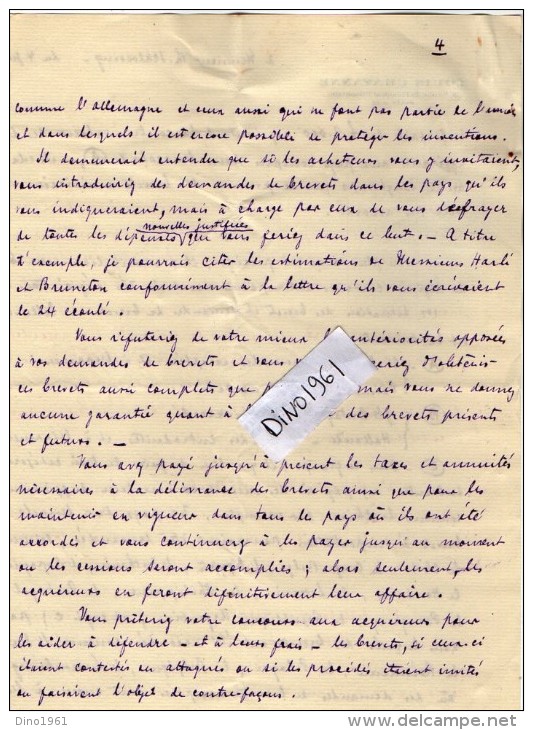 4
comme l'Allemagne et ceux aussi qui ne font pas partie de l'union
et dans lesquels il est encore possible de protéger les inventions.
Il demeurerait entendu que si les acheteurs vous y invitaient,
vous introduiriez des demandes de brevets dans les pays qu'ils
vous indiqueraient, mais à charge par eux de vous défrayer
nouvelles justifiées
de toutes les dépenses que vous feriez dans ce but. - A titre
d'exemple, je pourrais citer les estimations de Messieurs Harlé
et Bruneton conformément à la lettre qu'ils vous écrivaient
le 24 écoulé.
Vous réfuteriez de votre mieux les antériorités opposées
à vos demandes de brevets et vous d'obtenir
des brevets aussi complets que mais vous ne donnez
aucune garantie quant à des brevets présents
et futurs. -
Vous avez payé jusqu'à présent les taxes et annuités
nécessaires à la délivrance des brevets ainsi que pour les
maintenir en vigueur dans tous les pays où ils ont été
accordés et vous continuerez à les payer jusqu'au moment
où les cessions seront accomplies ; alors seulement, les
acquéreurs en feront définitivement leur affaire.
Vous prêteriez votre concours aux acquéreurs pour
les aider à défendre - et à leurs frais - les brevets, si ceux-ci
étaient contestés ou attaqués ou si les procédés étaient imités
ou faisaient l'objet de contre-façons.
DiNO1961
Dino1961
www.delcampe.net